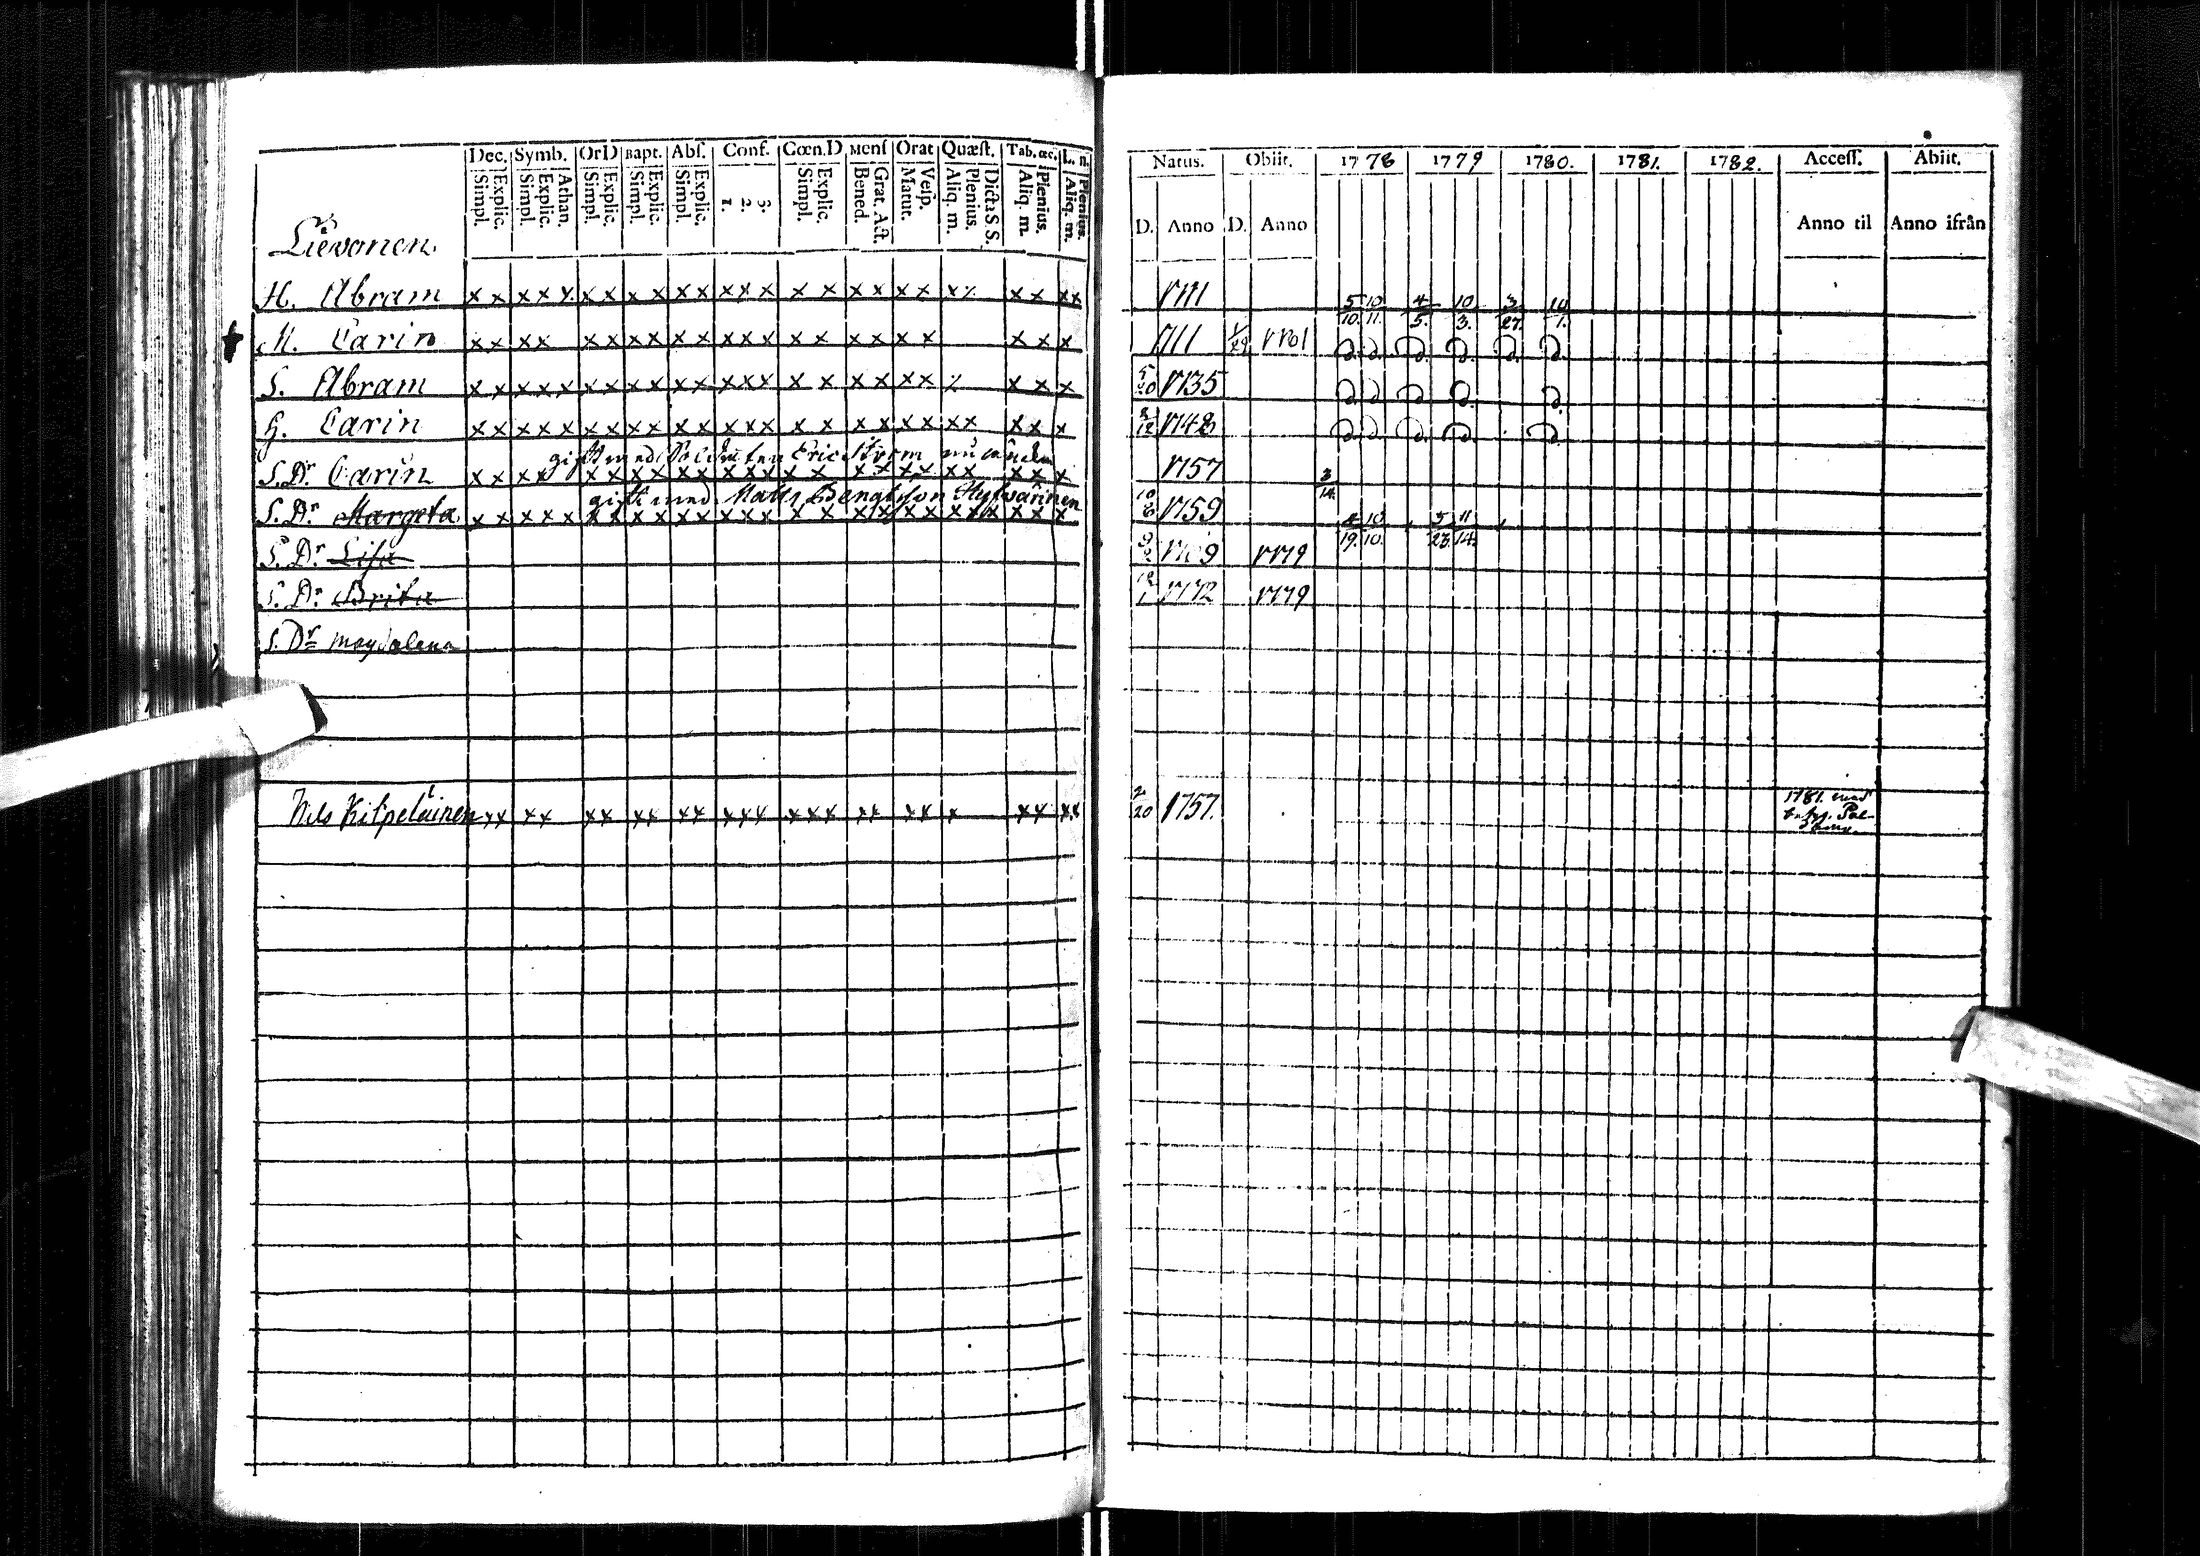 Dec. Symb. OrD Bapt. Abſ. Conf. Cœn.D Menſ Orat Quæſt. Tab. œc. L. n.
Simpl. Explic. Simpl. Explic. Athan. Simpl. Explic. Simpl. Explic. Simpl. Explic. 1. 2. 3. Simpl. Explic. Bened. Grat. Act. Matut. Veſp. Aliq. m. Plenius. Dicta S.S. Aliq. m. Plenius. Aliq. m. Plenius.
Lievonen
H. Abram x x x x x x x x x x x x x x x x x x x x x x x x x
M. Carin x x x x x x x x x x x x x x x x x x x x x x
S. Abram x x x x x x x x x x x x x x x x x x x x x x x
H. Carin x x x x x x x x x x x x x x x x x x x x x x x x x
gift med Soldaten Eric Ström
S. Dr Carin x x x x x x x x x x x x x x x x x x x x x x x x
gift med Matts Bengtsson
S. Dr Margeta x x x x x x x x x x x x x x x x x x x x x x x x x x
S. Dr Lisa
S. Dr Brita
S. Dr Magdalena
Nils Kilpeläinen x x x x x x x x x x x x x x x x x x x x x x x x
Natus. Obiit. 1778 1779 1780. 1781. 1782. Acceſſ. Abiit.
D. Anno D. Anno Anno til Anno ifrån
1711 5/10. 10/11. 4/5. 10/3. 3/27. 10/1.
1711 1781
5/20 1735
1748
1757 3/14.
10/6 1759 4/19. 10/10. 5/23. 11/14.
1769 1779
1772 1779
2/20 1757. 1781. med
betyg. Pal-
damo